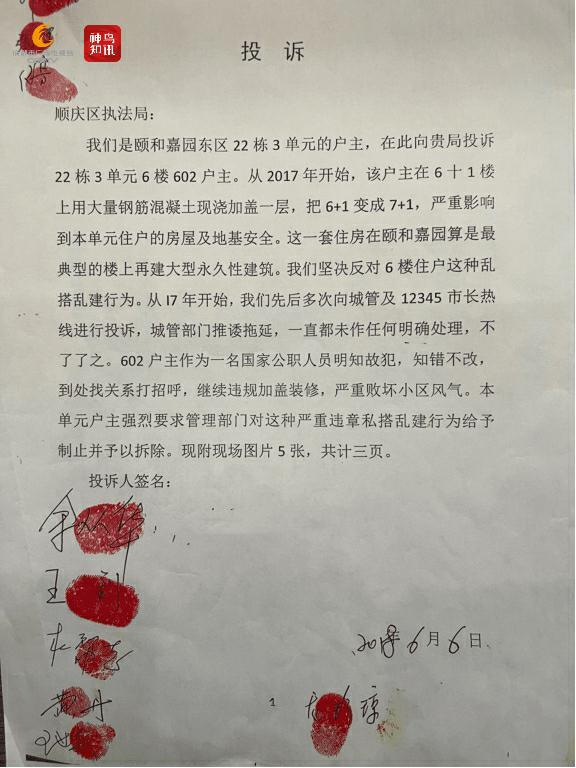 神鸟知讯
投 诉
顺庆区执法局：
我们是颐和嘉园东区 22 栋 3 单元的户主，在此向贵局投诉
22 栋 3 单元 6 楼 602 户主。从 2017 年开始，该户主在 6 十 1 楼
上用大量钢筋混凝土现浇加盖一层，把 6+1 变成 7+1，严重影响
到本单元住户的房屋及地基安全。这一套住房在颐和嘉园算是最
典型的楼上再建大型永久性建筑。我们坚决反对 6 楼住户这种乱
搭乱建行为。从 I7 年开始，我们先后多次向城管及 12345 市长热
线进行投诉，城管部门推诿拖延，一直都未作任何明确处理，不
了了之。602 户主作为一名国家公职人员明知故犯，知错不改，
到处找关系打招呼，继续违规加盖装修，严重败坏小区风气。本
单元户主强烈要求管理部门对这种严重违章私搭乱建行为给予
制止并予以拆除。现附现场图片 5 张，共计三页。
投诉人签名：
王
6月6日
黄丹
1